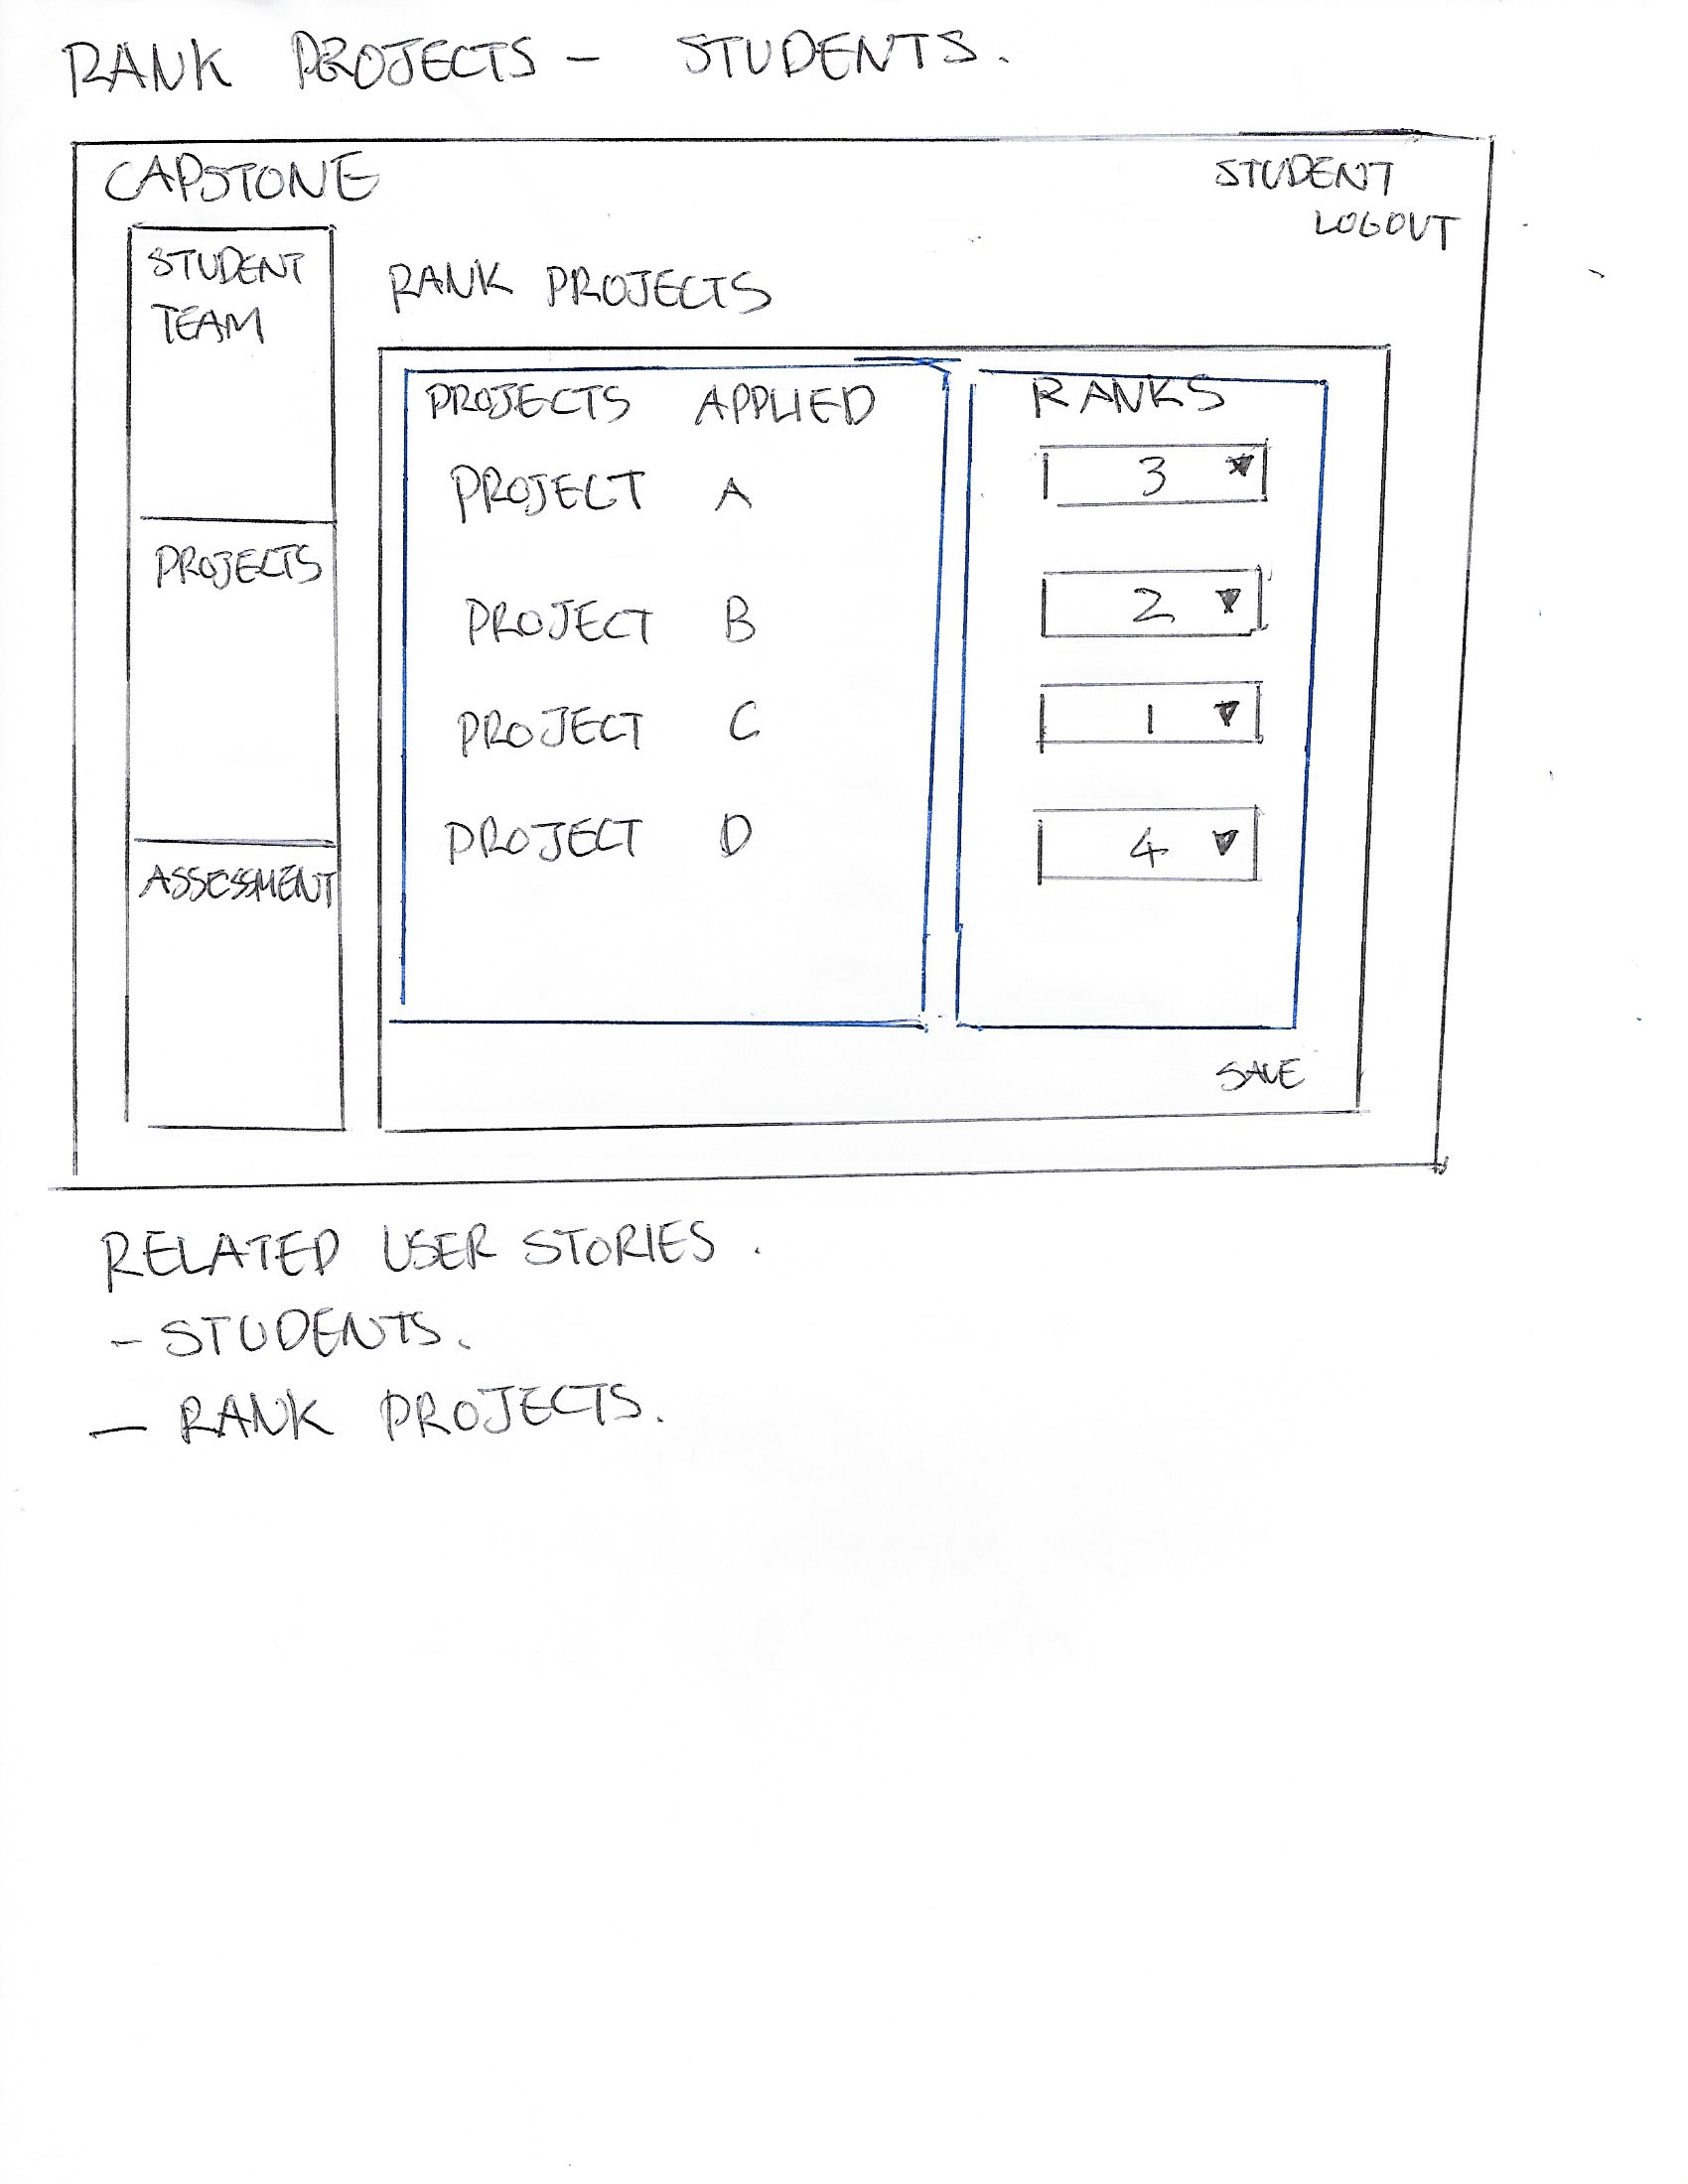 RANK PROJECTS - STUDENTS.
CAPSTONE
STUDENT
LOGOUT
STUDENT
TEAM
PROJECTS
ASSESSMENT
RANK PROJECTS
PROJECTS APPLIED RANKS
PROJECT A 3
PROJECT B 2
PROJECT C 1
PROJECT D 4
SAVE
RELATED USER STORIES.
- STUDENTS.
- RANK PROJECTS.